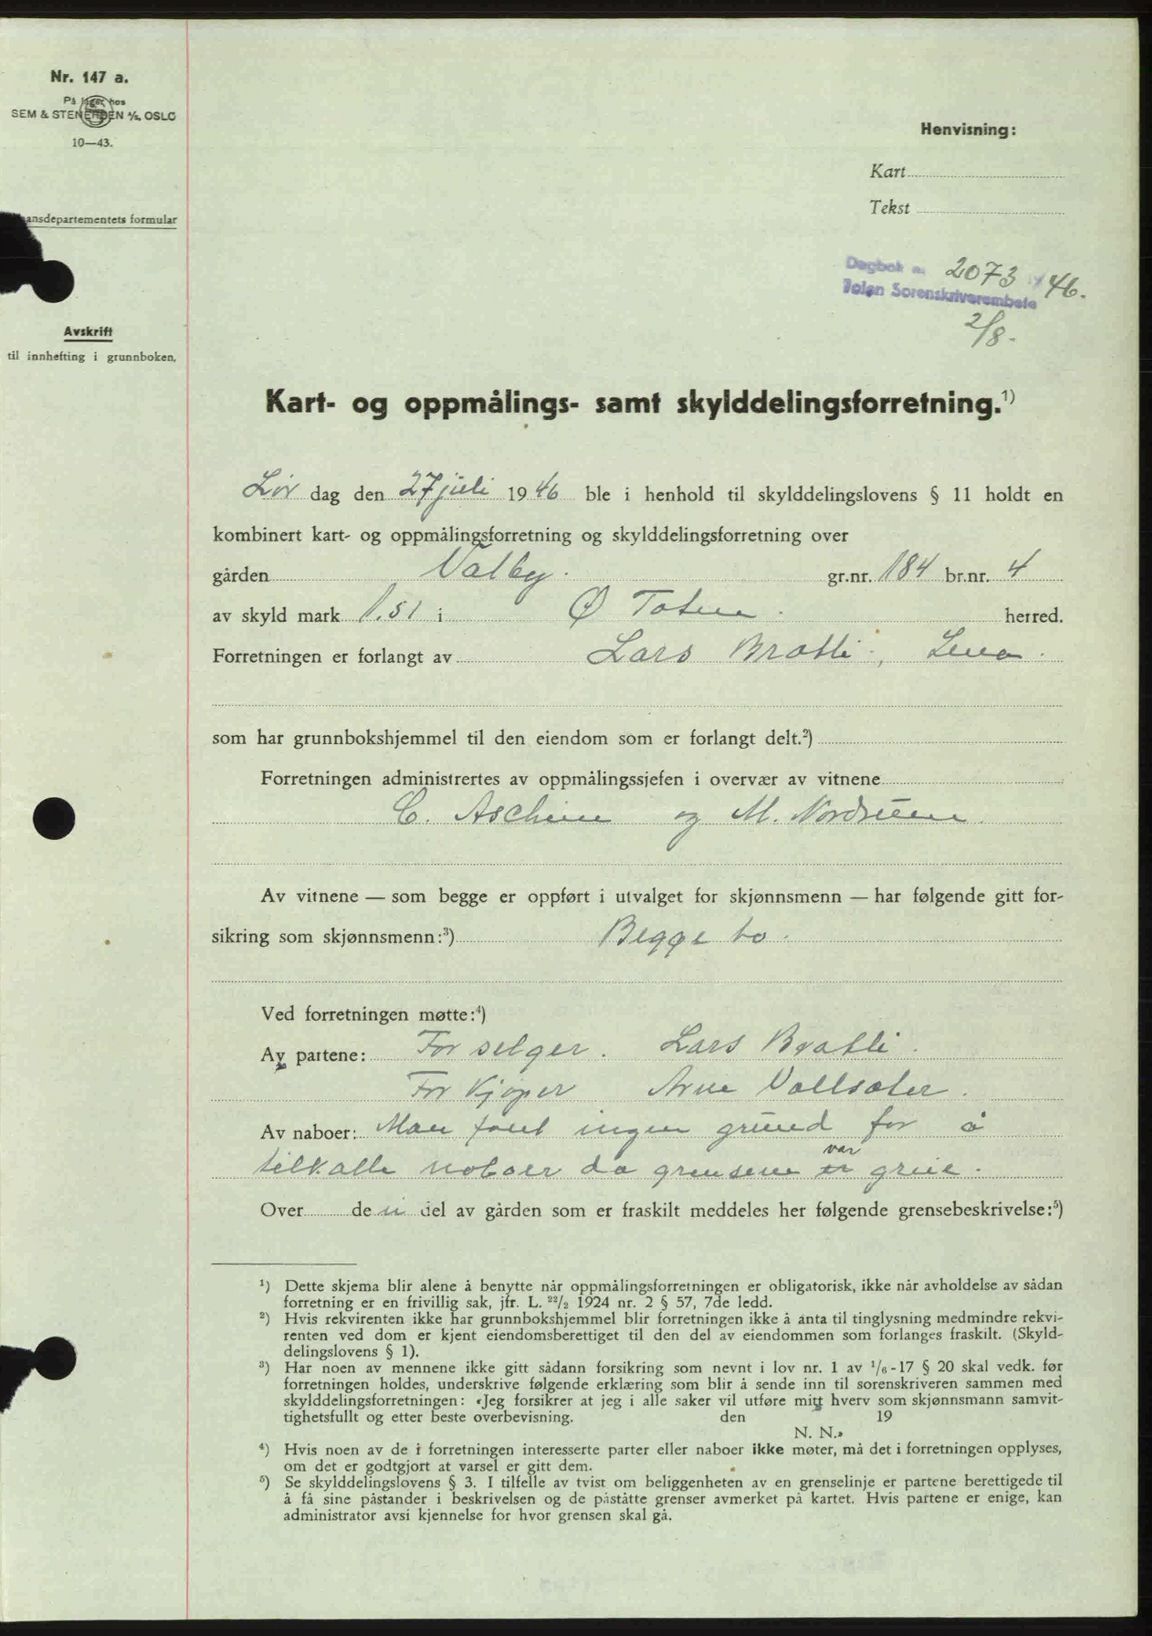 Nr. 147 a.
På lager hos
SEM & STENERSEN A/S, OSLO
10—43.
ansdepartementets formular
Avskrift
til innhefting i grunnboken.
Henvisning:
Kart
Tekst
Dagbok nr. 2073 19 46.
Toten Sorenskriverembete
2/8.
Kart- og oppmålings- samt skylddelingsforretning.¹)
Lør dag den 27 juli 1946 ble i henhold til skylddelingslovens § 11 holdt en
kombinert kart- og oppmålingsforretning og skylddelingsforretning over
gården Valby. gr.nr. 184 br.nr. 4
av skyld mark 1.51 i Ø Toten. herred.
Forretningen er forlangt av Lars Bratli, Lena.
som har grunnbokshjemmel til den eiendom som er forlangt delt.²)
Forretningen administrertes av oppmålingssjefen i overvær av vitnene
C. Aschim og M. Nordrum.
Av vitnene — som begge er oppført i utvalget for skjønnsmenn — har følgende gitt for-
sikring som skjønnsmenn:³) Begge to.
Ved forretningen møtte:⁴)
Av partene: For selger. Lars Bratli.
For Kjøper Arne Vallsæter.
Av naboer: Man fant ingen grund for å
tilkalle naboer da grensene er var greie.
Over de n del av gården som er fraskilt meddeles her følgende grensebeskrivelse:⁵)
¹) Dette skjema blir alene å benytte når oppmålingsforretningen er obligatorisk, ikke når avholdelse av sådan
forretning er en frivillig sak, jfr. L. 22/2 1924 nr. 2 § 57, 7de ledd.
²) Hvis rekvirenten ikke har grunnbokshjemmel blir forretningen ikke å anta til tinglysning medmindre rekvi-
renten ved dom er kjent eiendomsberettiget til den del av eiendommen som forlanges fraskilt. (Skyld-
delingslovens § 1).
³) Har noen av mennene ikke gitt sådann forsikring som nevnt i lov nr. 1 av 1/6-17 § 20 skal vedk. før
forretningen holdes, underskrive følgende erklæring som blir å sende inn til sorenskriveren sammen med
skylddelingsforretningen: «Jeg forsikrer at jeg i alle saker vil utføre mitt hverv som skjønnsmann samvit-
tighetsfullt og etter beste overbevisning. den 19
N. N.»
⁴) Hvis noen av de i forretningen interesserte parter eller naboer ikke møter, må det i forretningen opplyses,
om det er godtgjort at varsel er gitt dem.
⁵) Se skylddelingslovens § 3. I tilfelle av tvist om beliggenheten av en grenselinje er partene berettigede til
å få sine påstander i beskrivelsen og de påståtte grenser avmerket på kartet. Hvis partene er enige, kan
administrator avsi kjennelse for hvor grensen skal gå.